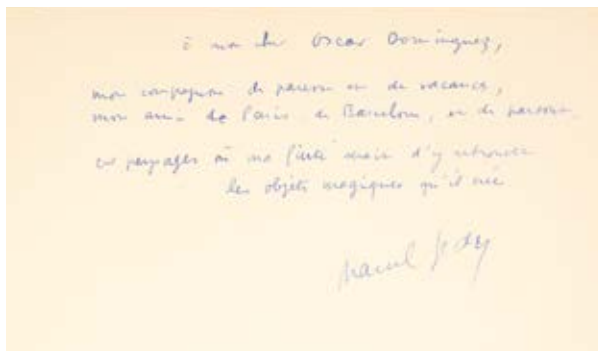 à mon cher Oscar Dominguez,
mon compagnon de et de vacances,
mon ami de Paris de Barcelone, et de
ces paysages où ma d'y retrouver
les objets magiques qu'il crée
Marcel